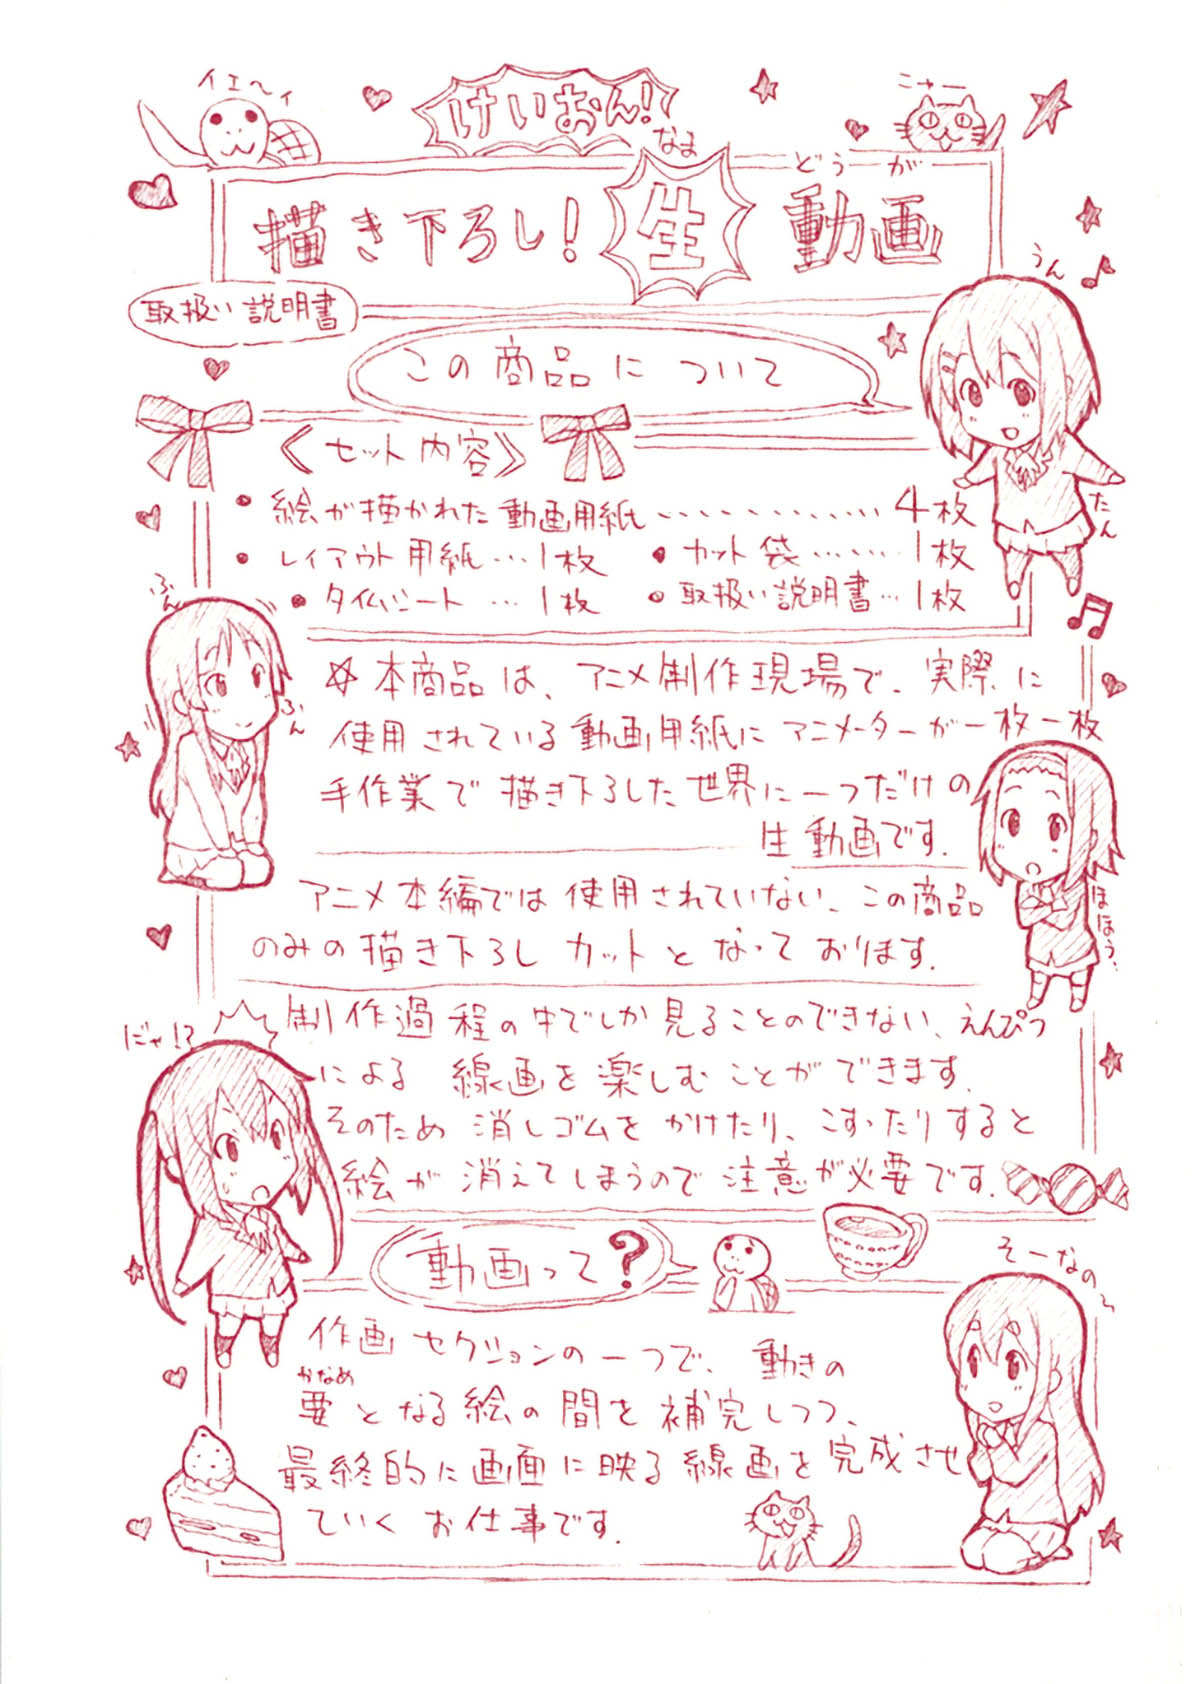 イエ〜イ
けいおん!
にゃー
なま
どうが
描き下ろし!生動画
取扱い説明書
うん
たん
この商品について
《セット内容》
・絵が描かれた動画用紙・・・・・・・・・・・・4枚
・レイアウト用紙…1枚 ・カット袋………1枚
・タイムシート…1枚 ・取扱い説明書…1枚
ふん
ふん
☆本商品は、アニメ制作現場で、実際に
使用されている動画用紙にアニメーターが一枚一枚
手作業で描き下ろした世界に一つだけの
生動画です.
ほほう、
アニメ本編では使用されていない、この商品
のみの描き下ろしカットとなっております.
にゃ!?
制作過程の中でしか見ることのできない、えんぴつ
による線画を楽しむことができます.
そのため消しゴムをかけたり、こすったりすると
絵が消えてしまうので注意が必要です.
動画って?
そーなの〜
作画セクションの一つで、動きの
かなめ
要となる絵の間を補完しつつ、
最終的に画面に映る線画を完成させ
ていくお仕事です.